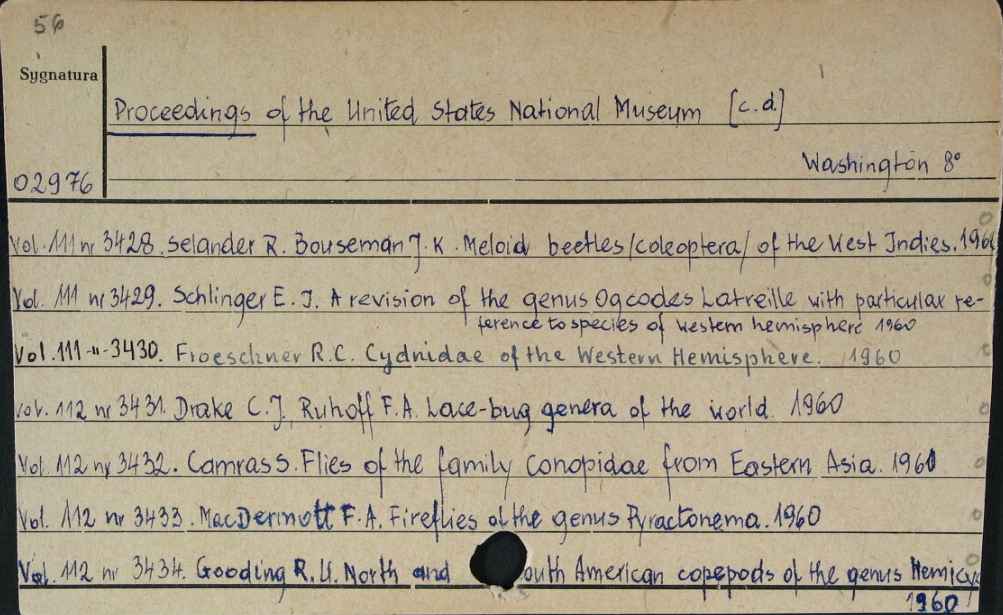 56
Sygnatura
Proceedings of the United States National Museum [c.d.]
Washington 8°
02976
Vol. 111 nr 3428. Selander R. Bouseman J.K. Meloid beetles/coleoptera/ of the West Indies. 1960
Vol. 111 nr 3429. Schlinger E. I. A revision of the genus Ogcodes Latreille with particular re-
ference to species of western hemisphere 1960
Vol. 111 -"- 3430. Froeschner R.C. Cydnidae of the Western Hemisphere. 1960
Vol. 112 nr 3431. Drake C.J. Ruhoff F.A. Lace-bug genera of the world. 1960
Vol. 112 nr 3432. Camras S. Flies of the family Conopidae from Eastern Asia. 1960
Vol. 112 nr 3433. MacDermott F.A. Fireflies of the genus Pyractonema. 1960
Vol. 112 nr 3434. Gooding R.U. North and outh American copepods of the genus Hemicy
1960